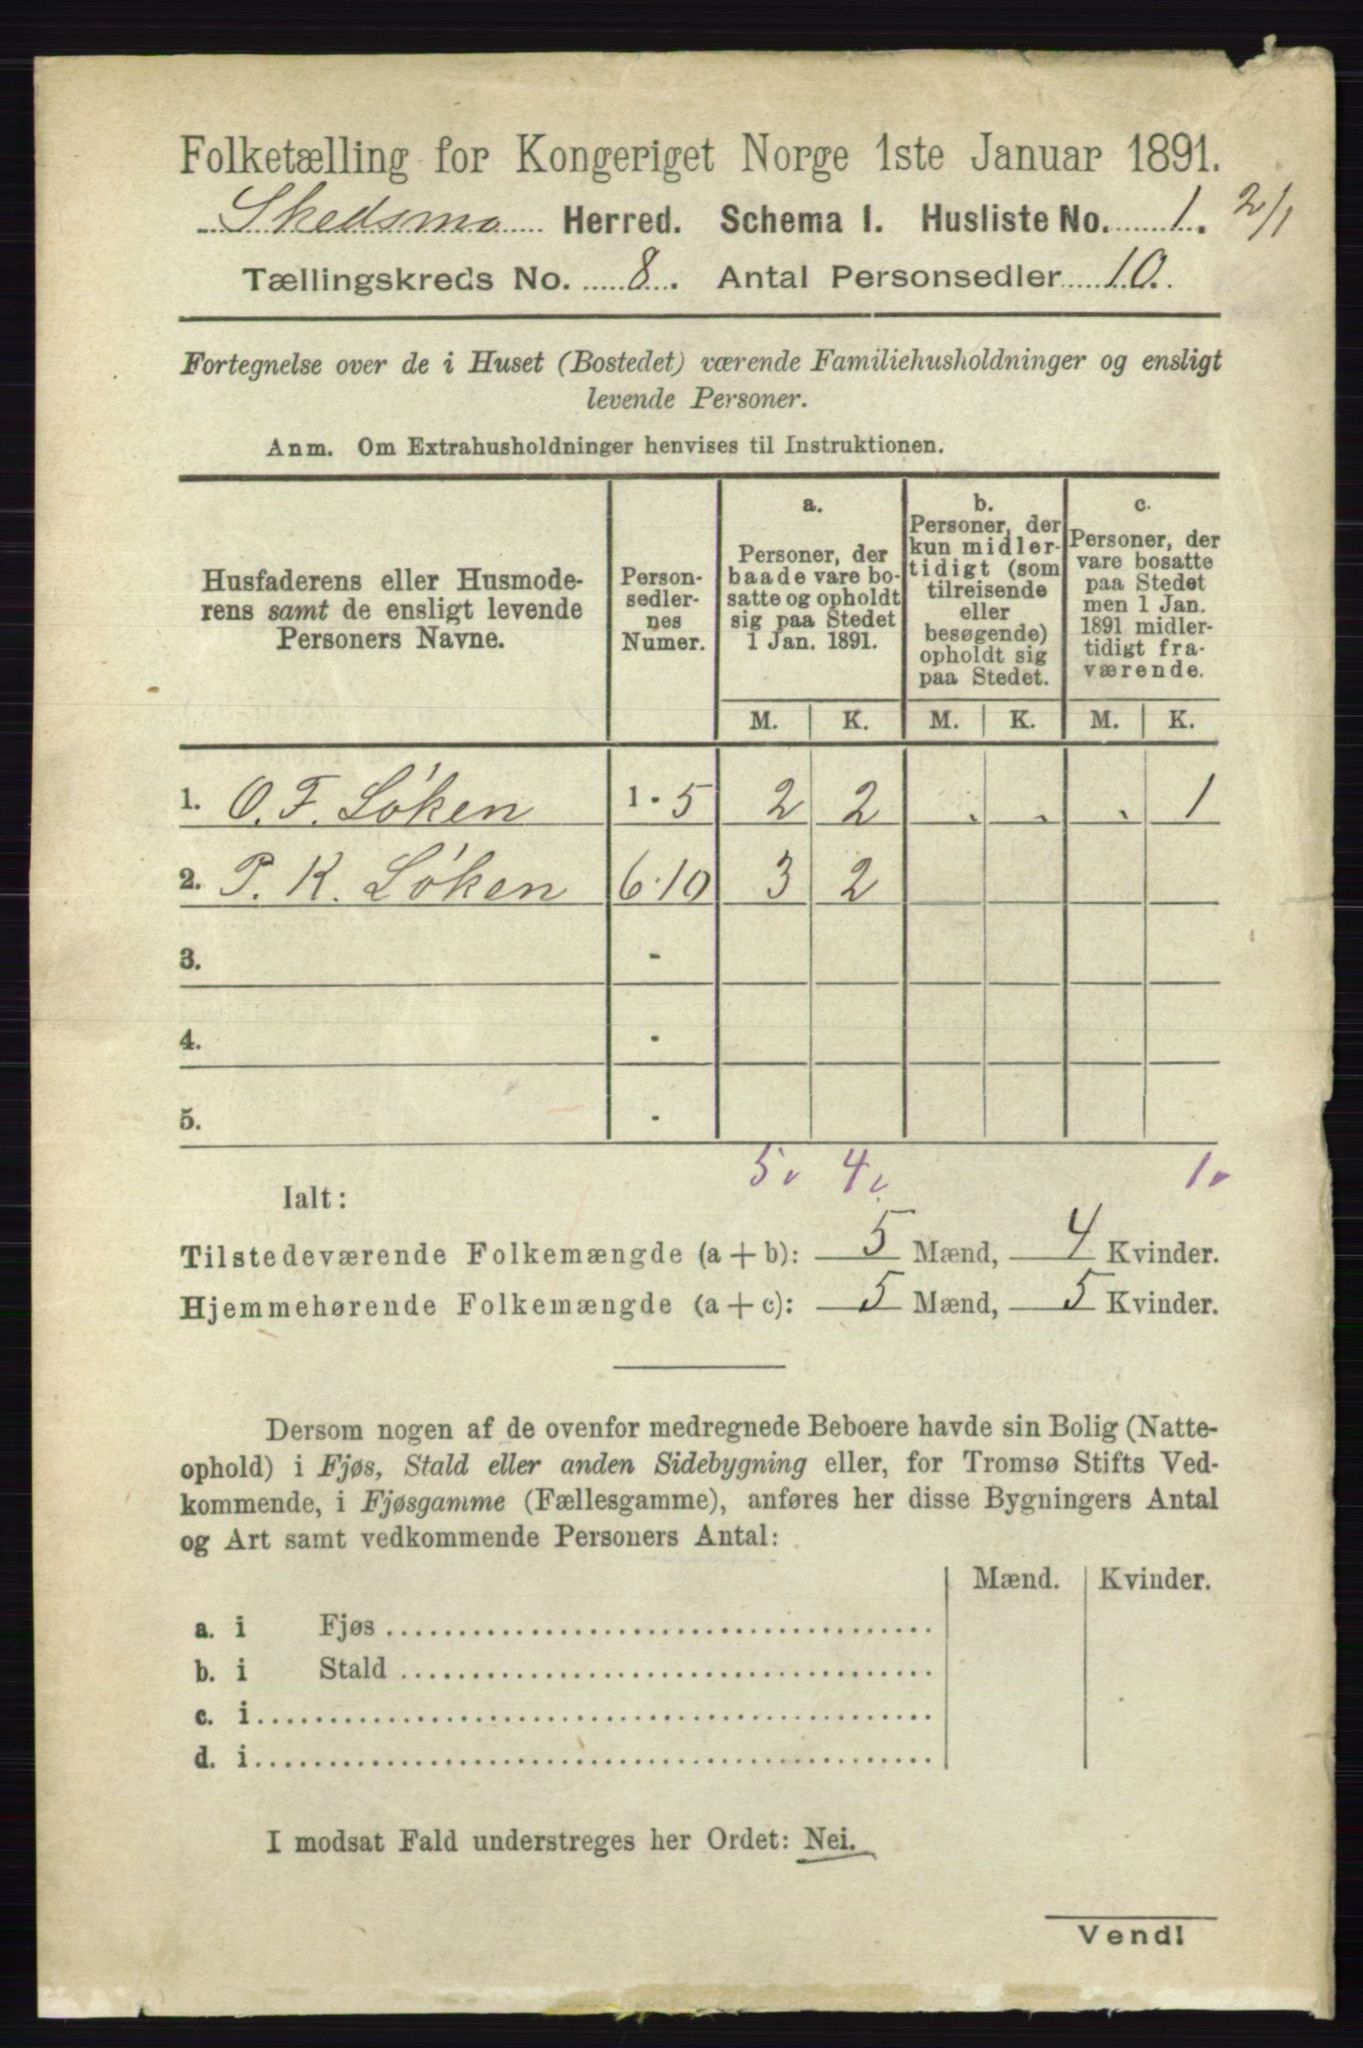 Folketælling for Kongeriget Norge 1ste Januar 1891.
Skedsmo Herred. Schema I. Husliste No. 1. 2/1
Tællingskreds No. 8. Antal Personsedler 10.
Fortegnelse over de i Huset (Bostedet) værende Familiehusholdninger og ensligt
levende Personer.
Anm. Om Extrahusholdninger henvises til Instruktionen.
Husfaderens eller Husmode-
rens samt de ensligt levende
Personers Navne.
Person-
sedler-
nes
Numer.
a.
Personer, der
baade vare bo-
satte og opholdt
sig paa Stedet
1 Jan. 1891.
b.
Personer, der
kun midler-
tidigt (som
tilreisende
eller
besøgende)
opholdt sig
paa Stedet.
c.
Personer, der
vare bosatte
paa Stedet
men 1 Jan.
1891 midler-
tidigt fra-
værende.
M. K. M. K. M. K.
1. O. F. Löken 1 - 5 2 2 . . . 1
2. P. K. Löken 6-10 3 2
3. -
4. -
5. -
5 4 1
Ialt:
Tilstedeværende Folkemængde (a + b): 5 Mænd, 4 Kvinder.
Hjemmehørende Folkemængde (a + c): 5 Mænd, 5 Kvinder.
Dersom nogen af de ovenfor medregnede Beboere havde sin Bolig (Natte-
ophold) i Fjøs, Stald eller anden Sidebygning eller, for Tromsø Stifts Ved-
kommende, i Fjøsgamme (Fællesgamme), anføres her disse Bygningers Antal
og Art samt vedkommende Personers Antal:
Mænd. Kvinder.
a. i Fjøs
b. i Stald
c. i
d. i
I modsat Fald understreges her Ordet: Nei.
Vend!